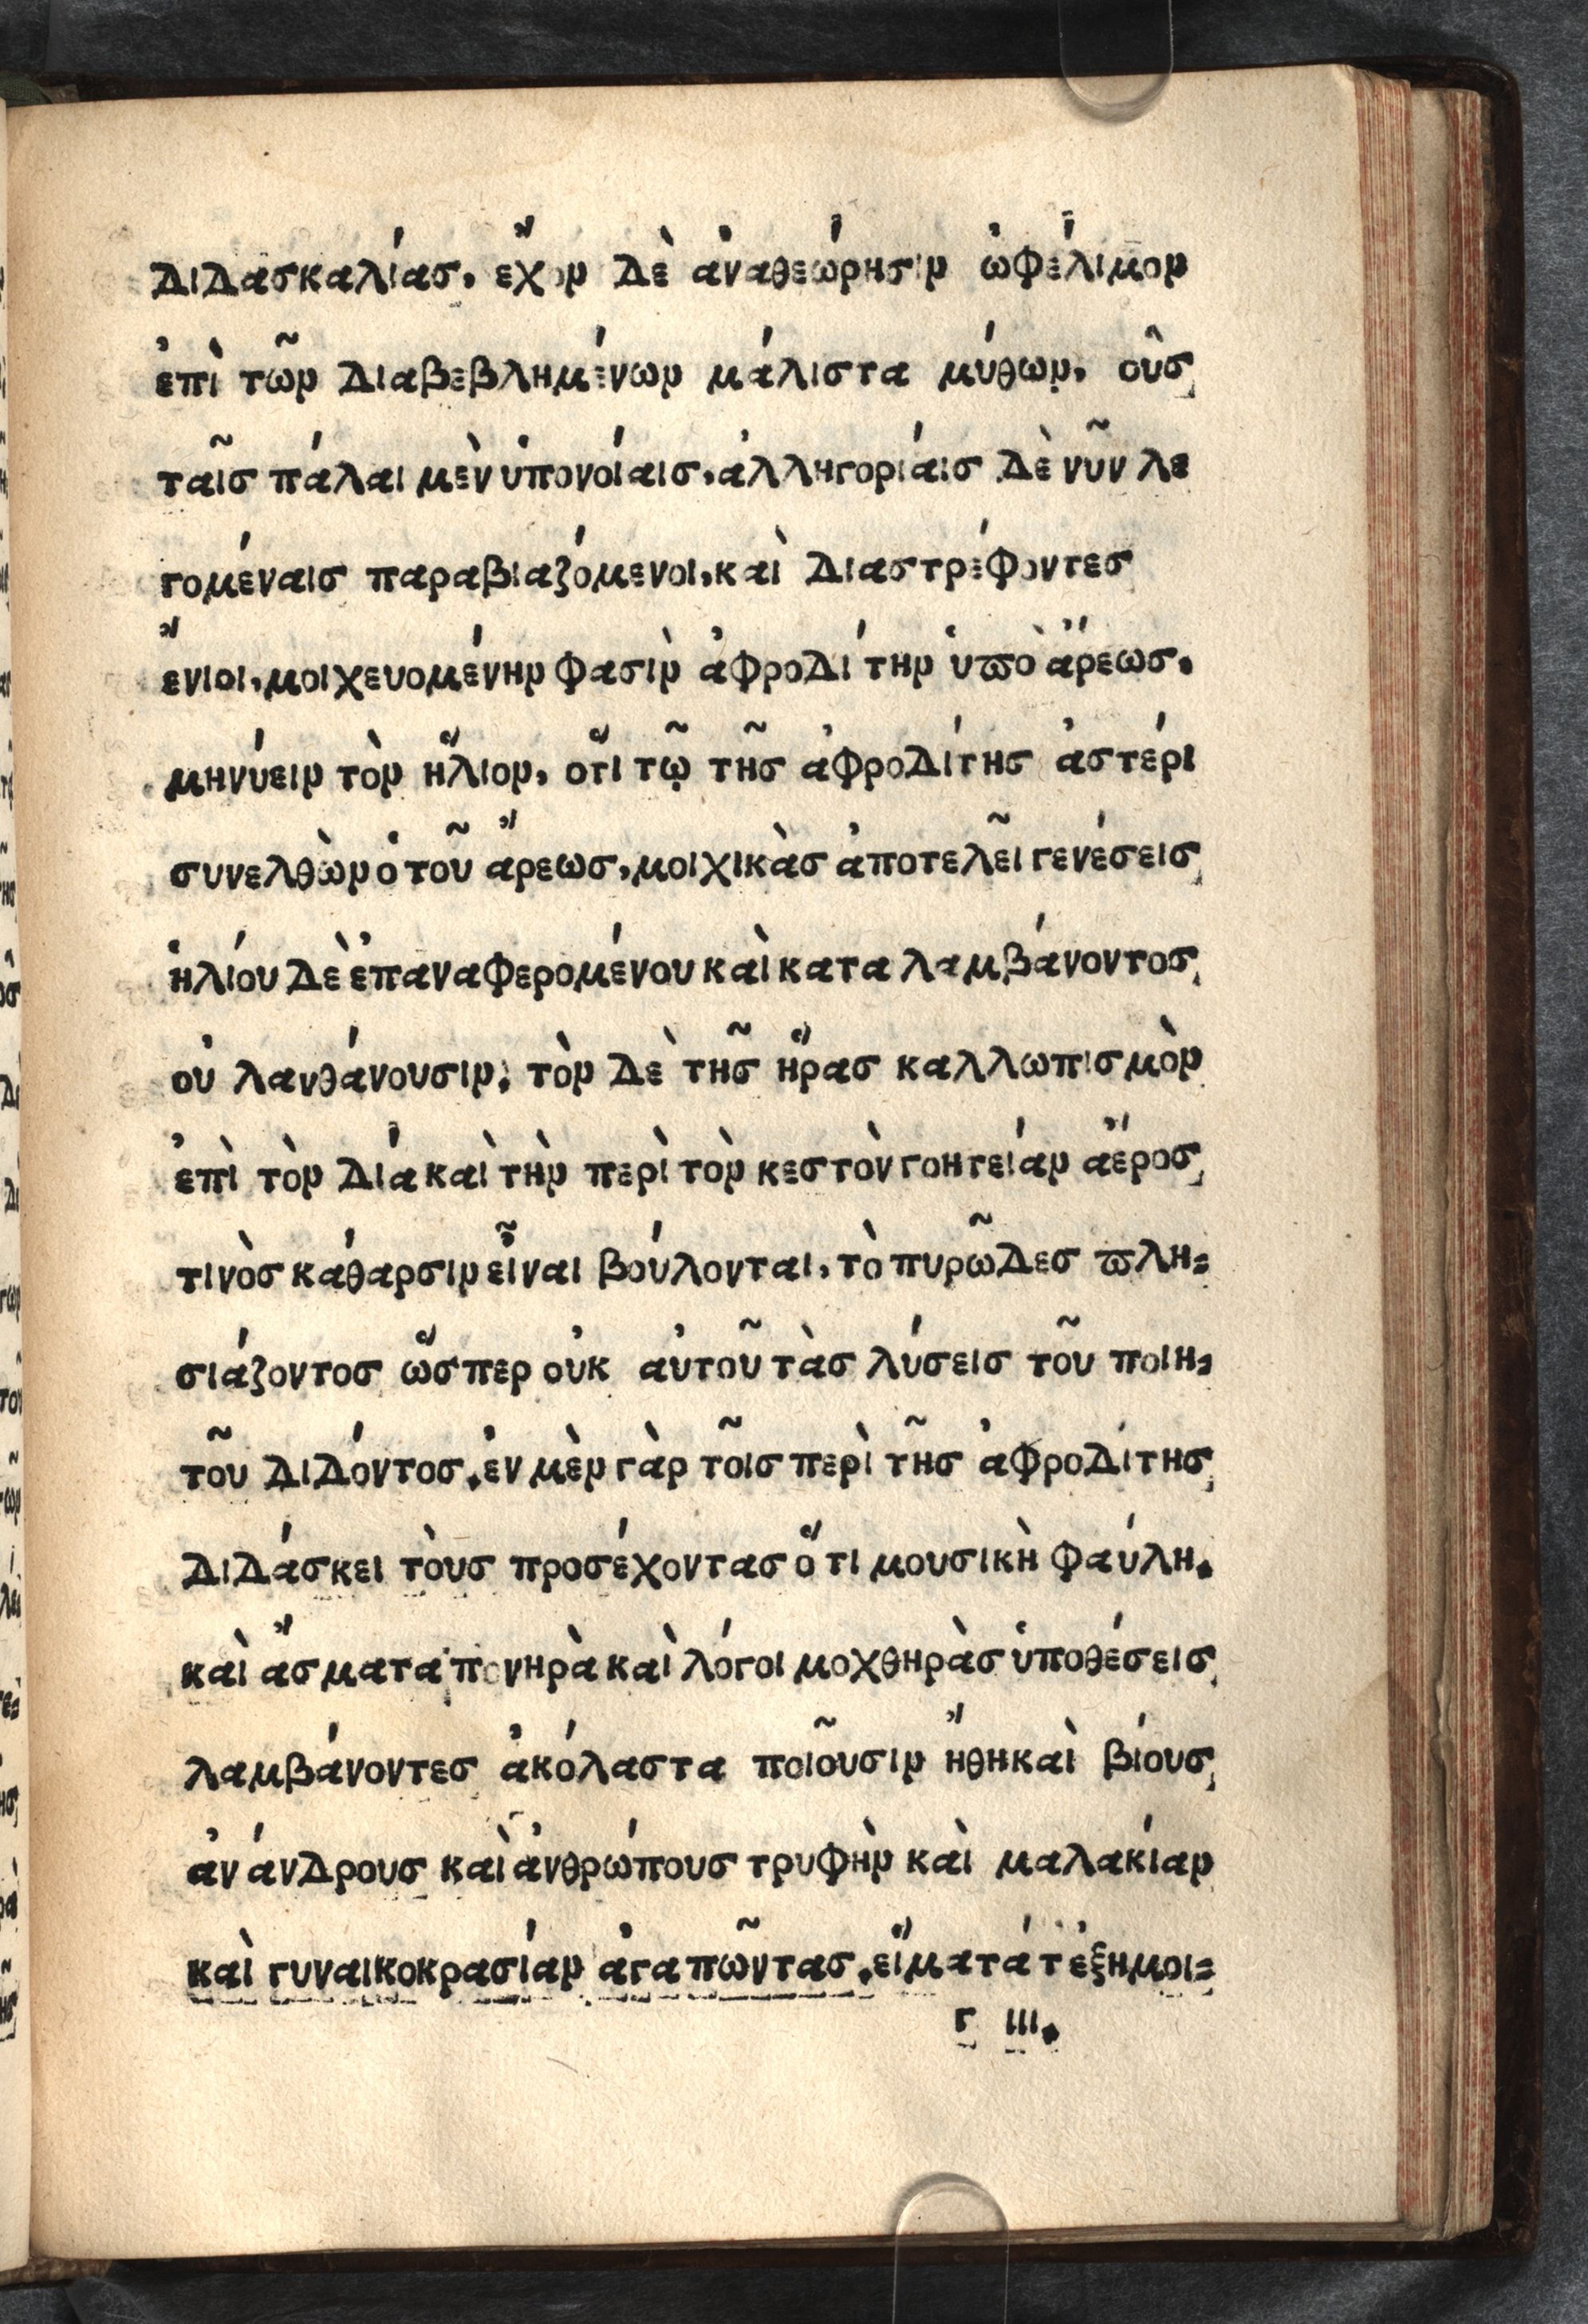 διδασκαλίας, ἔχον δὲ ἀναθεώρησιν ὠφέλιμον
ἐπὶ τῶν διαβεβλημένων μάλιστα μύθων, οὓς
ταῖς πάλαι μὲν ὑπονοίαις, ἀλληγορίαις δὲ νῦν λε
γομέναις παραβιαζόμενοι, καὶ διαστρέφοντες
ἔνιοι, μοιχευομένην φασὶν ἀφροδίτην ὑπὸ ἄρεως,
μηνύειν τὸν ἥλιον, ὅτι τῷ τῆς ἀφροδίτης ἀστέρι
συνελθὼν ὁ τοῦ ἄρεως, μοιχικὰς ἀποτελεῖ γενέσεις
ἡλίου δὲ ἐπαναφερομένου καὶ καταλαμβάνοντος
οὐ λανθάνουσιν; τὸν δὲ τῆς ἥρας καλλωπισμὸν
ἐπὶ τὸν Δία καὶ τὴν περὶ τὸν κεστὸν γοητείαν ἄέρος
τινὸς κάθαρσιν εἶναι βούλονται, τὸ πυρῶδες πλη=
σιάζοντος ὥσπερ οὐκ αὐτοῦ τὰς λύσεις τοῦ ποιη=
τοῦ διδόντος. ἐν μὲν γὰρ τοῖς περὶ τῆς ἀφροδίτης
διδάσκει τὸυς προσέχοντας ὅτι μουσικὴ φαύλη.
καὶ ἄσματα πονηρὰ καὶ λόγοι μοχθηρὰς ὑποθέσεις
λαμβάνοντες ἀκόλαστα ποιοῦσιν ἤθη καὶ βίους
ἀνάνδρους καὶ ἀνθρώπους τρυφὴν καὶ μαλακίαν
καὶ γυναικοκρασίαν ἀγαπῶντας. εἵματά τ' ἐξημοι=
γ III.